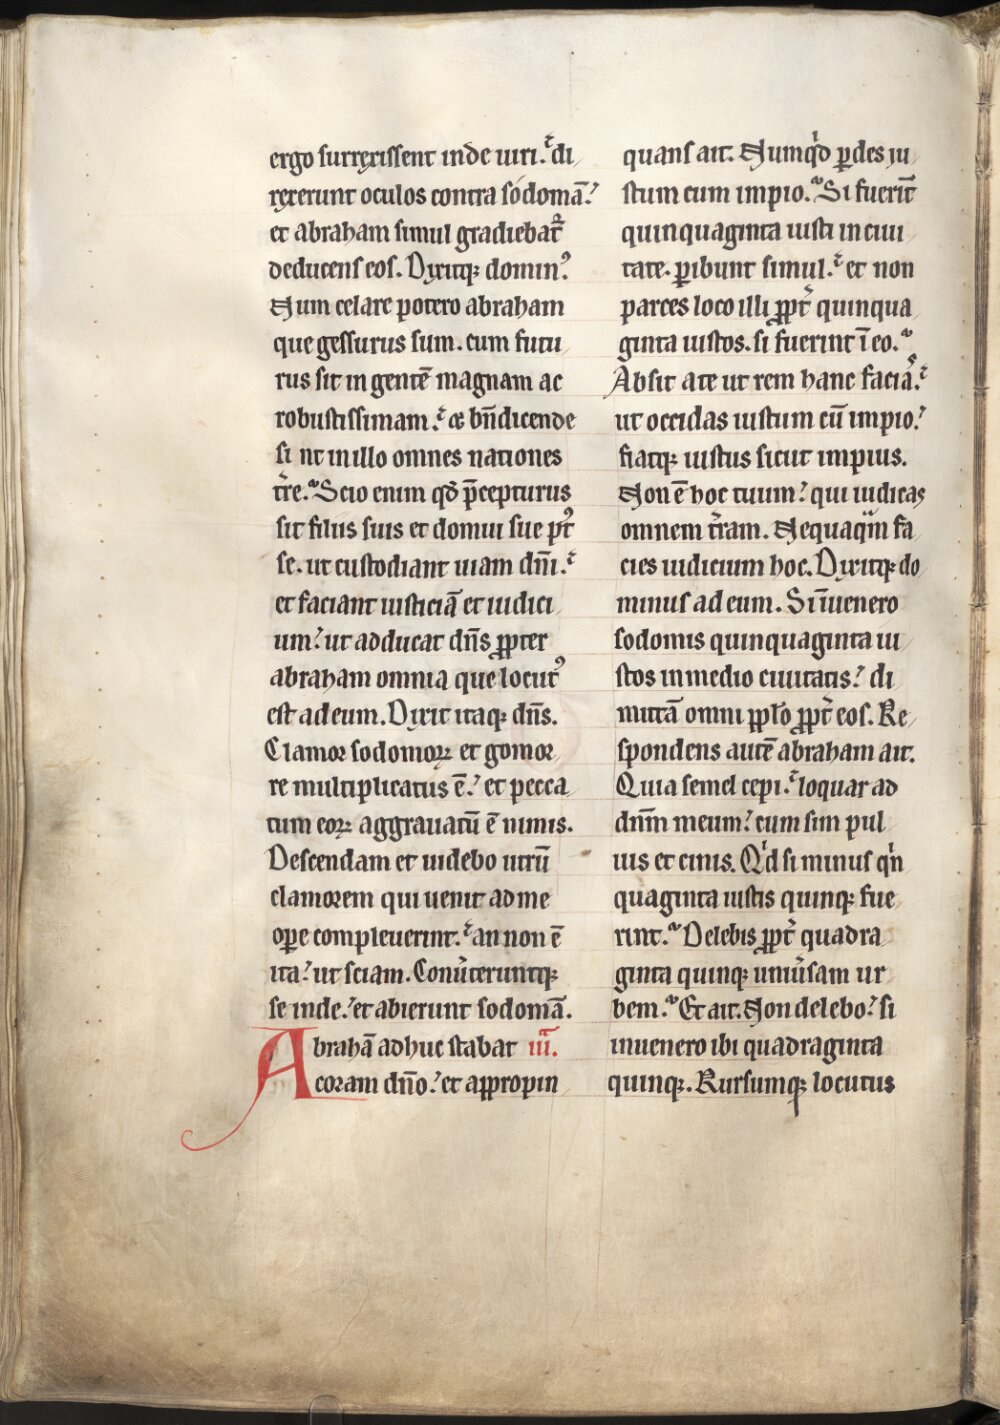 ergo surrexissent inde uiri. di
rexerunt oculos contra sodomā.
et abraham simul gradiebat᷑
deducens eos. Dixitq; domin᷒.
Num celare potero abraham
que gessurus sum. cum futu
rus sit in gentē magnam ac
robustissimam. & bn̄dicende
si nt in illo omnes nationes
t̄re. Scio enim qđ p̄cepturus
sit filiis suis et domui sue pt᷒
se. ut custodiant uiam dn̄i.
et faciant iusticiā et iudici
um. ut adducat dn̄s ꝓpter
abraham omnia que locut᷒
est ad eum. Dixit itaq; dn̄s.
Clamor sodomoꝝ et gomor
re multiplicatus ē. et pecca
tum eoꝝ aggrauatū ē nimis.
Descendam et uidebo utrū
clamorem qui uenit ad me
oꝑe compleuerint. an non ē
ita. ut sciam. Conu̓teruntq;
se inde. et abierunt sodomā.
Abrahā adhuc stabat iii.
coram dn̄o. et appropin
quans ait. Numqͥd ꝑdes iu
stum cum impio. Si fuerīt
quinquaginta iusti in ciui
tate. ꝑibunt simul. et non
parces loco illi ꝓpt̄ quinqua
ginta iustos. si fuerint ī eo.
Absit a te ut rem hanc faciaˢ.
ut occidas iustum cū impio.
fiatq; iustus sicut impius.
Non ē hoc tuum. qui iudicas
omnem t̄ram. Nequaqͣm fa
cies iudicium hoc. Dixitq; do
minus ad eum. Si īuenero
sodomis quinquaginta iu
stos in medio ciuitatis. di
mittā omni ꝓpl̄o ꝓpt̄ eos. Re
spondens autē abraham ait.
Quia semel cepi. loquar ad
dn̄m meum. cum sim pul
uis et cinis. Qͥd si minus qͥn
quaginta iustis quinq; fue
rint. Delebis ꝓpt̄ quadra
ginta quinq; uniu̓sam ur
bem. Et ait. Non delebo. si
inuenero ibi quadraginta
quinq;. Rursumq; locutus